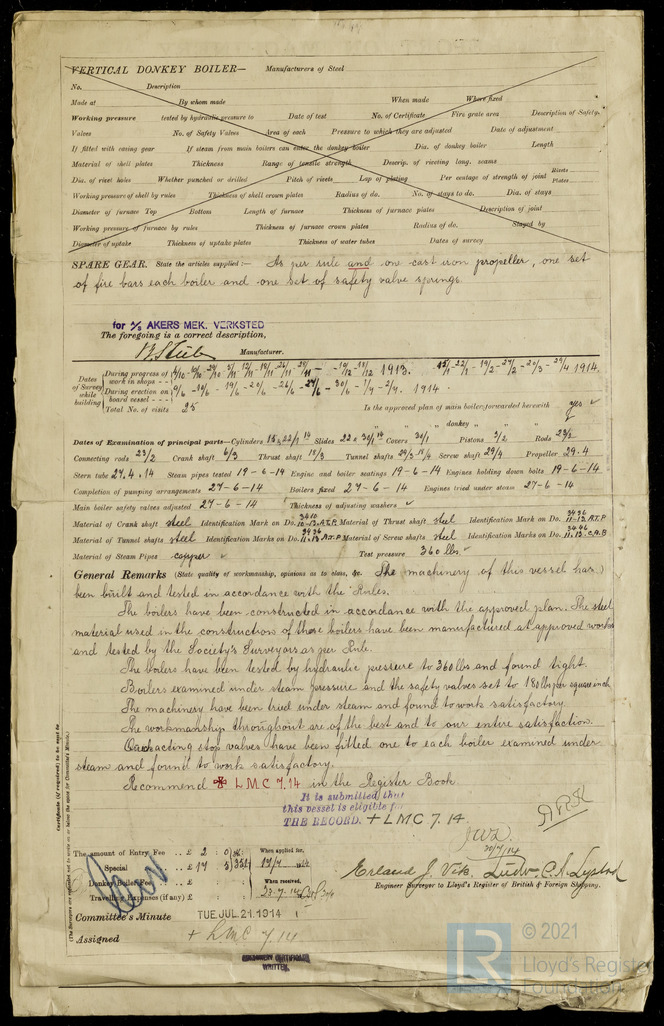 VERTICAL DONKEY BOILER— Manufacturers of Steel
No. Description
Made at By whom made When made Where fixed
Working pressure tested by hydraulic pressure to Date of test No. of Certificate Fire grate area Description of Safety
Valves No. of Safety Valves Area of each Pressure to which they are adjusted Date of adjustment
If fitted with easing gear If steam from main boilers can enter the donkey boiler Dia. of donkey boiler Length
Material of shell plates Thickness Range of tensile strength Descrip. of riveting long. seams
Dia. of rivet holes Whether punched or drilled Pitch of rivets Lap of plating Per centage of strength of joint Rivets Plates
Working pressure of shell by rules Thickness of shell crown plates Radius of do. No. of stays to do. Dia. of stays
Diameter of furnace Top Bottom Length of furnace Thickness of furnace plates Description of joint
Working pressure of furnace by rules Thickness of furnace crown plates Radius of do. Stayed by
Diameter of uptake Thickness of uptake plates Thickness of water tubes Dates of survey
SPARE GEAR. State the articles supplied:— As per rule and one cast iron propeller, one set
of fire bars each boiler and one set of safety valve springs.
for A/S AKERS MEK. VERKSTED
The foregoing is a correct description,
Manufacturer.
Dates of Survey while building
During progress of work in shops - - 1913. 1914.
During erection on board vessel - - 9/6 - 10/6 - 19/6 - 20/6 - 26/6 - 27/6 - 30/6 - 1/7 - 2/7. 1914.
Total No. of visits 25 Is the approved plan of main boiler forwarded herewith yes
" " " donkey " " "
Dates of Examination of principal parts—Cylinders 15 & 22/1 14 Slides 22 & 30/1 14 Covers 30/1 Pistons 3/2 Rods 23/2
Connecting rods 23/2 Crank shaft 6/3 Thrust shaft 18/3 Tunnel shafts Screw shaft 29/4 Propeller 29.4
Stern tube 27.4.14 Steam pipes tested 19-6-14 Engine and boiler seatings 19-6-14 Engines holding down bolts 19-6-14
Completion of pumping arrangements 27-6-14 Boilers fixed 27-6-14 Engines tried under steam 27-6-14
Main boiler safety valves adjusted 27-6-14 Thickness of adjusting washers ✓
Material of Crank shaft steel Identification Mark on Do. 3410 10-13.A.T.P. Material of Thrust shaft steel Identification Mark on Do. 3436 11-13.A.T.P.
Material of Tunnel shafts steel Identification Marks on Do. 3436 11.13.A.T.P. Material of Screw shafts steel Identification Marks on Do. 3446 11.13.C.A.B
Material of Steam Pipes copper ✓ Test pressure 360 lbs. ✓
General Remarks (State quality of workmanship, opinions as to class, &c. The machinery of this vessel has
been built and tested in accordance with the Rules.
The boilers have been constructed in accordance with the approved plan. The steel
material used in the construction of these boilers have been manufactured at approved works
and tested by the Society's Surveyors as per Rule.
The boilers have been tested by hydraulic pressure to 360 lbs and found tight.
Boilers examined under steam pressure and the safety valves set to 180 lbs per square inch
The machinery have been tried under steam and found to work satisfactory.
The workmanship throughout are of the best and to our entire satisfaction.
stop valves have been fitted one to each boiler examined under
steam and found to work satisfactory.
Recommend ✠ LMC 7.14 in the Register Book.
It is submitted that
this vessel is eligible for
THE RECORD. + LMC 7.14.
20/7/14
Certificate (if required) to be sent to
(The Surveyors are requested not to write on or below the space for Committee's Minute.)
The amount of Entry Fee .. £ 2 : 0 : When applied for,
Special .. £ 17 : 5 : 14
Donkey Boiler Fee .. £ : : When received,
Travelling Expenses (if any) £ : : 22.7.14
Erland J. Vik. Ludw. C. A. Lystad
Engineer Surveyor to Lloyd's Register of British & Foreign Shipping.
Committee's Minute TUE JUL. 21. 1914
Assigned + LMC 7.14
MACHINERY CERTIFICATE
WRITTEN.
LR
© 2021
Lloyd's Register
Foundation